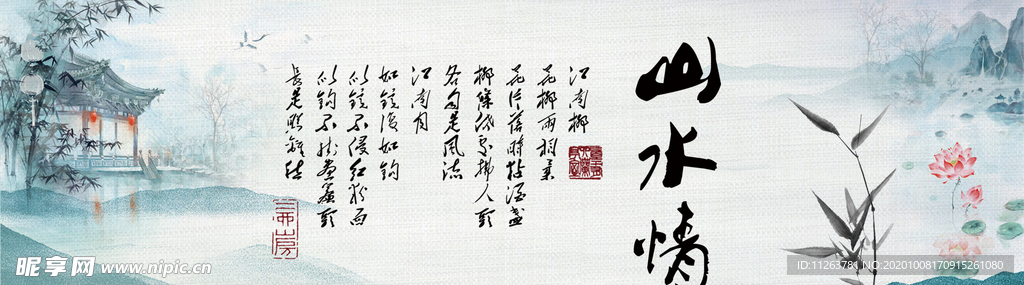 山水情
江南柳
花柳兩相柔
花片落時粘酒盞
柳條低處拂人頭
各自是風流
江南月
如鏡復如鉤
似鏡不侵紅粉面
似鉤不挂畫簾頭
長是照離愁
昵享网 www.nipic.cn
ID:11263781 NO:20201008170915261080